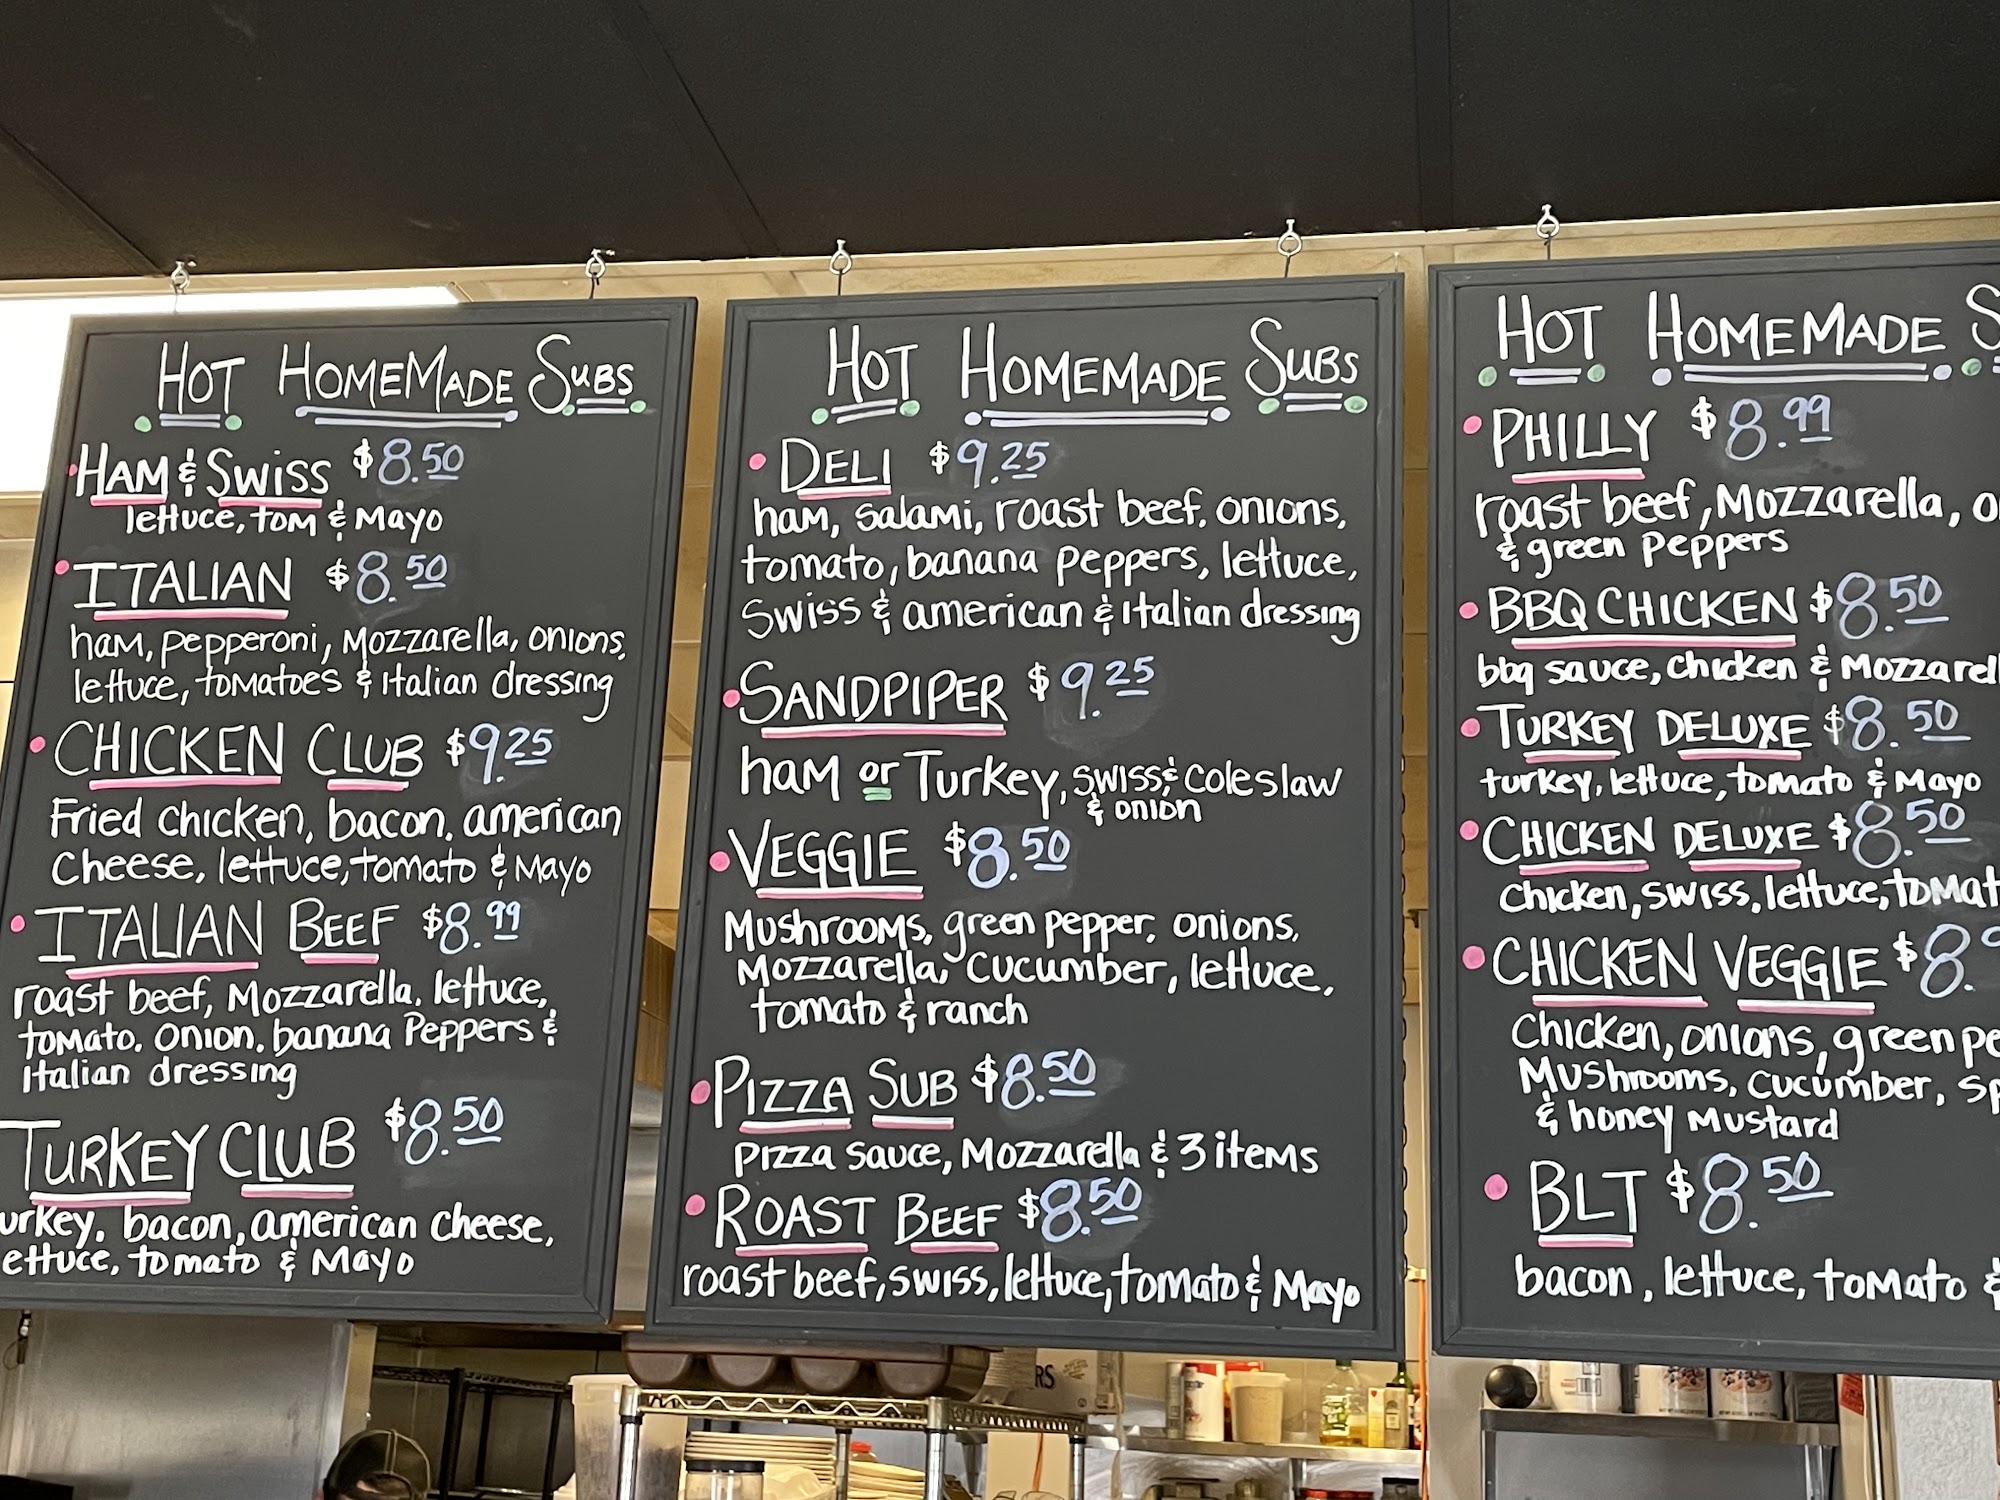 HOT HOMEMADE SUBS
HAM & SWISS $8.50
lettuce, tom & Mayo
ITALIAN $8.50
ham, pepperoni, Mozzarella, onions,
lettuce, tomatoes & italian dressing
CHICKEN CLUB $9.25
Fried chicken, bacon, american
Cheese, lettuce, tomato & Mayo
ITALIAN BEEF $8.99
roast beef, Mozzarella, lettuce,
tomato, onion, banana Peppers &
italian dressing
TURKEY CLUB $8.50
urkey, bacon, american cheese,
ettuce, tomato & Mayo
HOT HOMEMADE SUBS
DELI $9.25
ham, salami, roast beef, onions,
tomato, banana peppers, lettuce,
Swiss & american & italian dressing
SANDPIPER $9.25
ham or Turkey, swiss & Coleslaw
& onion
VEGGIE $8.50
Mushrooms, green pepper, onions,
Mozzarella, cucumber, lettuce,
tomato & ranch
PIZZA SUB $8.50
pizza sauce, Mozzarella & 3 items
ROAST BEEF $8.50
roast beef, swiss, lettuce, tomato & Mayo
HOT HOMEMADE S
PHILLY $8.99
roast beef, Mozzarella, o
& green peppers
BBQ CHICKEN $8.50
bbq sauce, chicken & Mozzarell
TURKEY DELUXE $8.50
turkey, lettuce, tomato & Mayo
CHICKEN DELUXE $8.50
Chicken, swiss, lettuce, tomat
CHICKEN VEGGIE $8.9
Chicken, onions, green pe
Mushrooms, cucumber, sp
& honey Mustard
BLT $8.50
bacon, lettuce, tomato &
RS